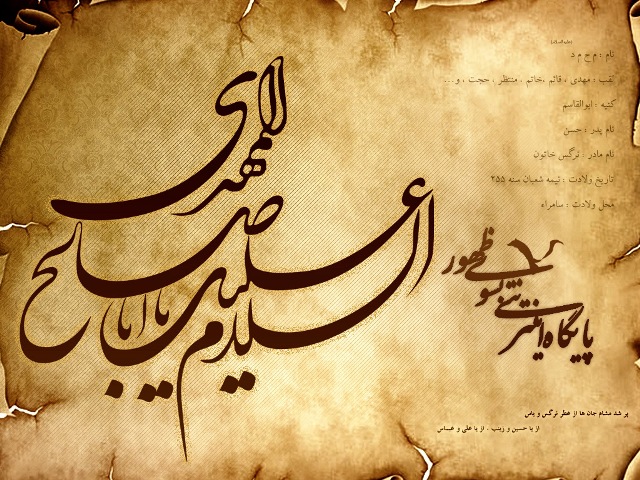 السلام علیک یا ابا صالح المهدی
(علیه السلام)
نام : م ح م د
لقب : مهدی ، قائم ،خاتم ، منتظر ، حجت ، و...
کنیه : ابوالقاسم
نام پدر : حسن
نام مادر : نرگس خاتون
تاریخ ولادت : نیمه شعبان سنه ۲۵۵
محل ولادت : سامراء
پایگاه اینترنتی بسوی ظهور
پر شد مشام جان ها از عطر نرگس و یاس
از یا حسین و زینب ، از یا علی و عباس